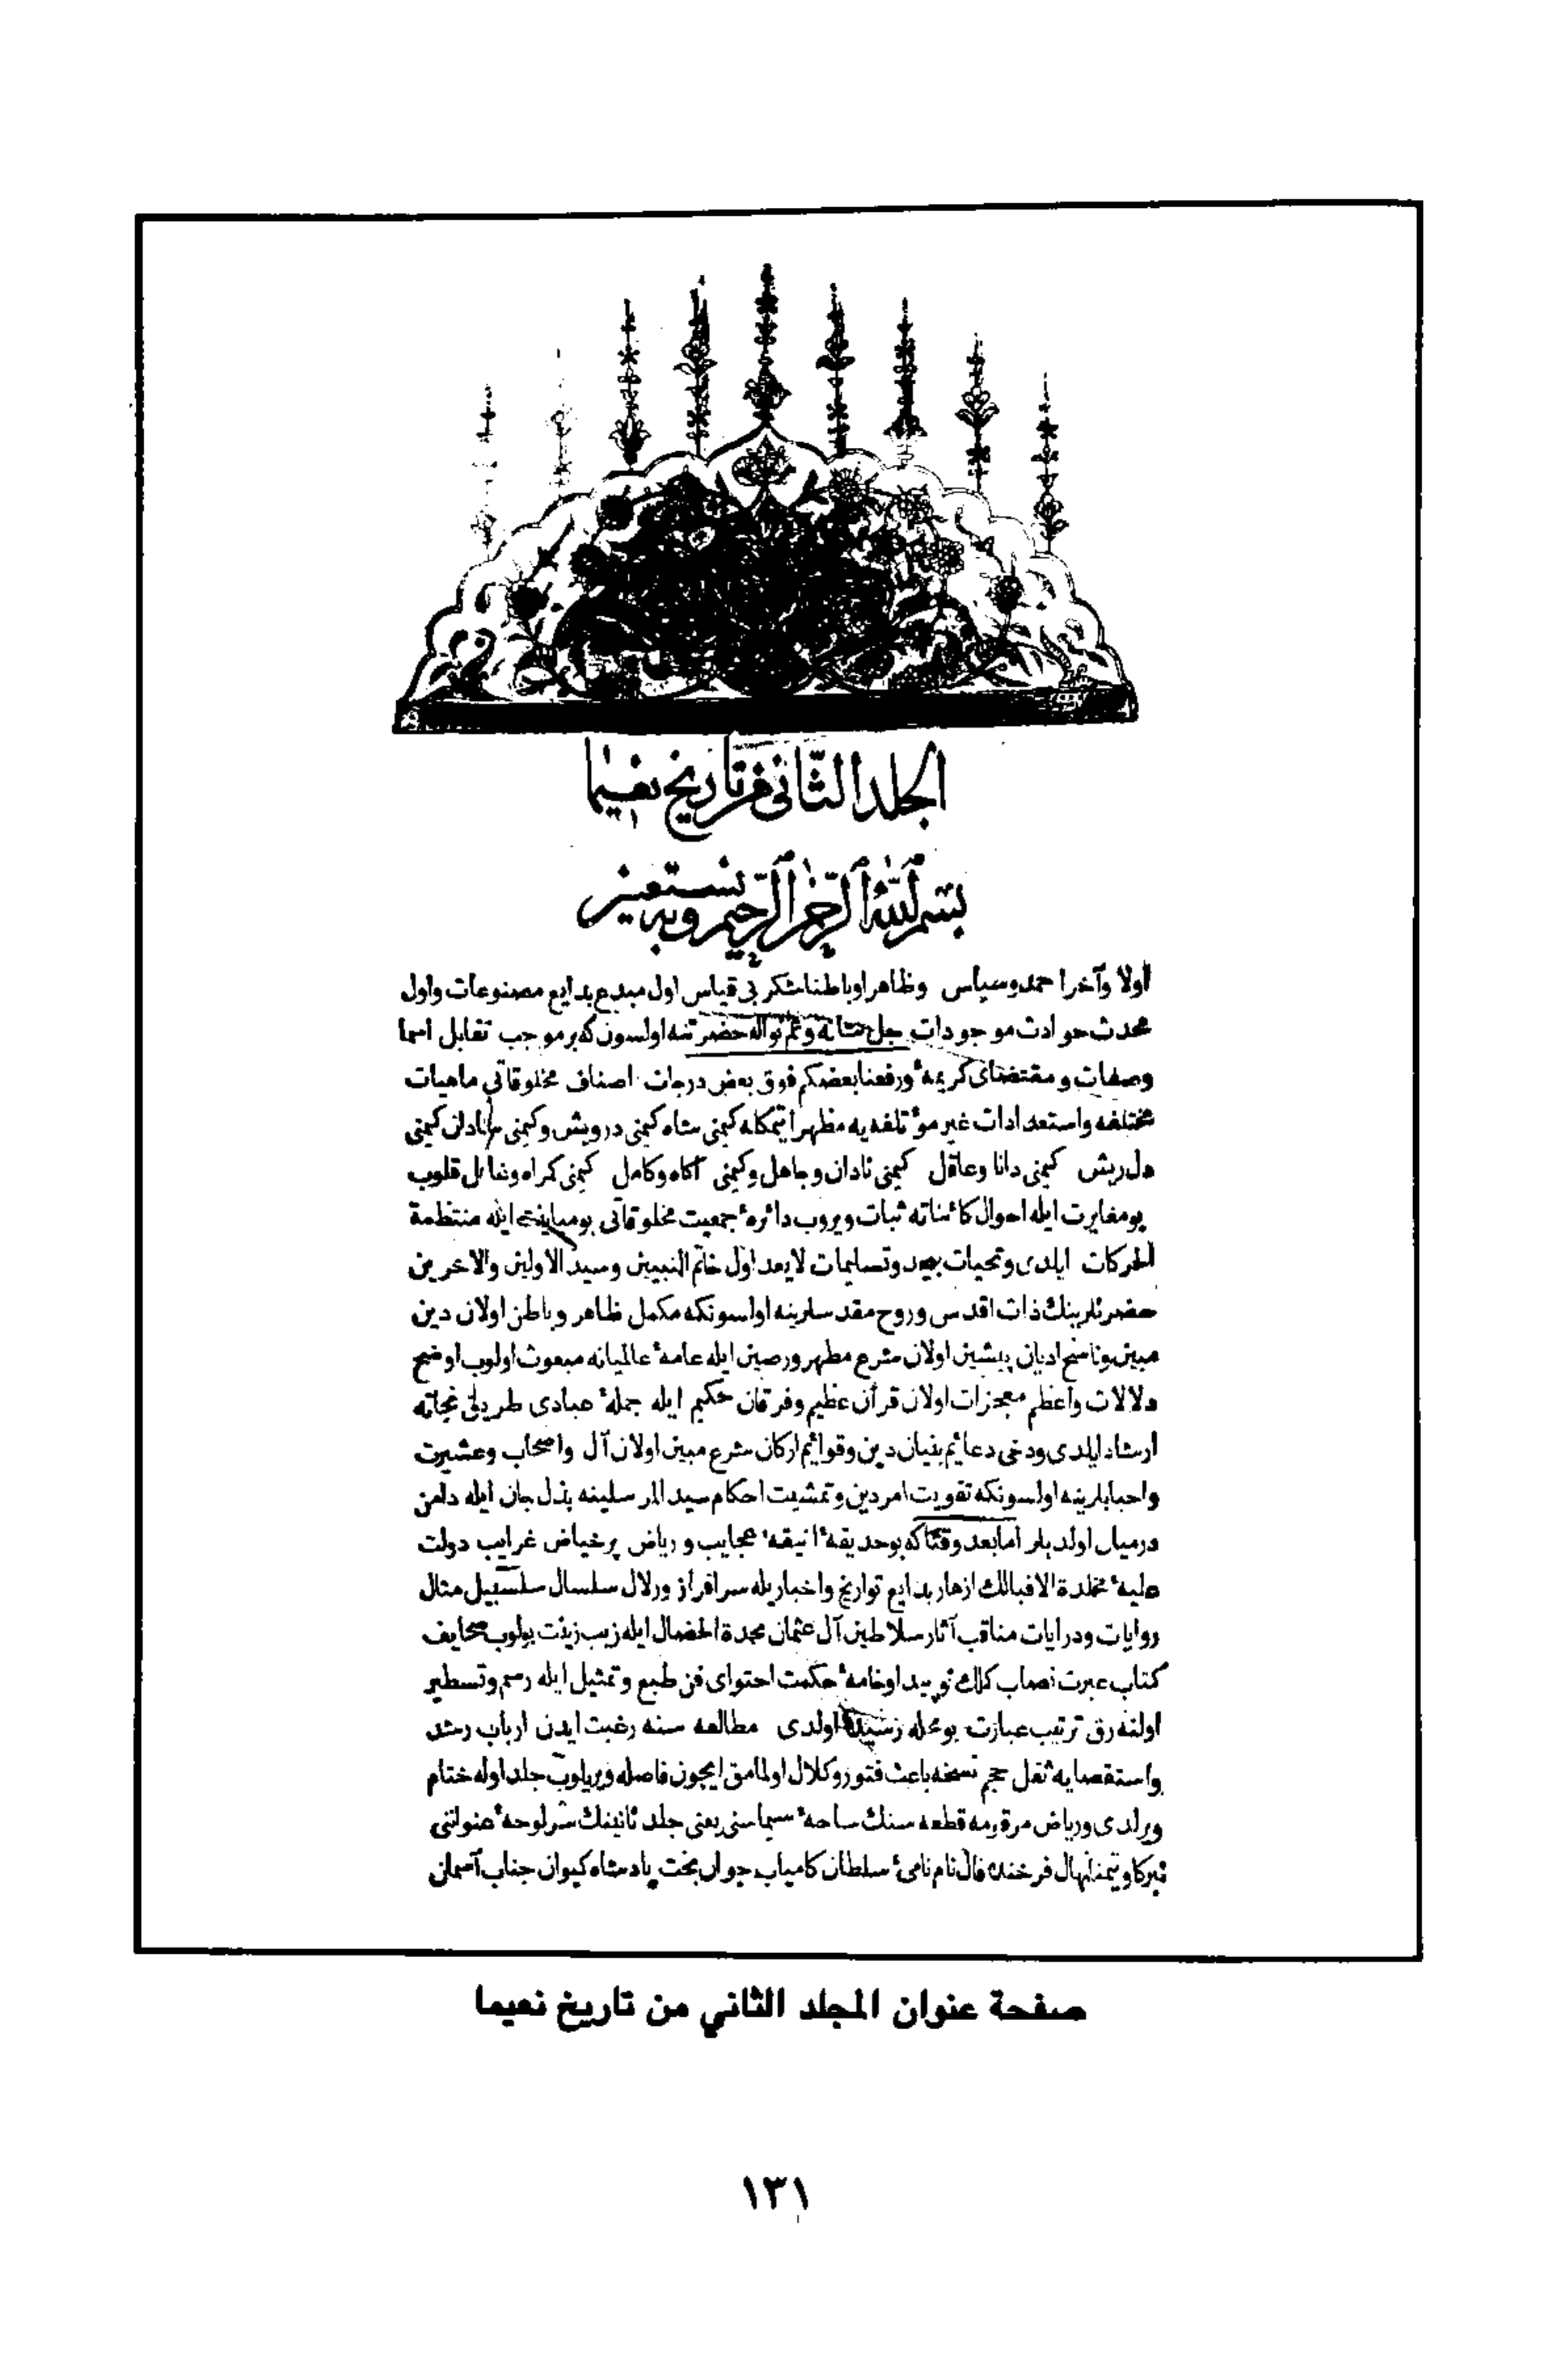 الجلد الثانى من تاريخ نعيما
بسم الله الرحمن الرحيم وبه نستعين
اولا وآخرا حمد وسپاس وظاهرا وباطنا شكر بى قياس اول مبدع بدايع مصنوعات واول
محدث حوادث موجودات جل شانه وعم نواله حضرتنه اولسون كه بر موجب تقابل اسما
وصفات ومقتضاى كريمۀ ورفعنا بعضكم فوق بعض درجات اصناف مخلوقاتى ماهيات
مختلفه واستعدادات غير مؤتلفه يه مظهر ايتمكله كيمنى شاه كيمنى درويش وكيمنى شادان كيمنى
دلريش كيمنى دانا وعاقل كيمنى نادان وجاهل وكيمنى آكاه وكامل كيمنى كمراه وغافل قلوب
بو مغايرت ايله احوال كائناته ثبات ويروب دائرۀ جمعيت مخلوقاتى بو مباينت ايله منتظمة
الحركات ايلدى وتحيات بيحد وتسليمات لايعد اول خاتم النبيين وسيد الاولين والاخرين
حضرتلرينك ذات اقدس وروح مقدسلرينه اولسونكه مكمل ظاهر وباطن اولان دين
مبين وناسخ اديان پيشين اولان شرع مطهر ورصين ايله عامۀ عالميانه مبعوث اولوب اوضح
دلالات واعظم معجزات اولان قرآن عظيم وفرقان حكيم ايله جملۀ عبادى طريق نجاته
ارشاد ايلدى ودخى دعائم بنيان دين وقوائم اركان شرع مبين اولان آل واصحاب وعشيرت
واحبابلرينه اولسونكه تقويت امر دين وتمشيت احكام سيد المرسلينه بذل جان ايله دامن
درميان اولديلر امابعد وقتاكه بو حديقۀ انيقۀ عجايب ورياض پر خياض غرايب دولت
عليۀ مخلدة الاقبالك ازهار بدايع تواريخ واخباريله سرافراز وزلال سلسال سلسبيل مثال
روايات ودرايات مناقب آثار سلاطين آل عثمان محمدة الخصال ايله زيب زينت بولوب صحايف
كتاب عبرت نصاب كلك نو پيدا وخامۀ حكمت احتواى فن طبع وتمثيل ايله رسم وتسطير
اولنه رق ترتيب عبارت بو محله رسيده اولدى مطالعه سنه رغبت ايدن ارباب رشد
واستقصايه ثقل حجم نسخه باعث فتور وكلال اولمامق ايچون فاصله ويريلوب جلد اوله ختام
ويرلدى ورياض مرقومه قطعه سنك ساحۀ سيماسنى يعنى جلد ثانينك سرلوحۀ عنواننى
تبركا وتيمنا نهال فرخنده فال نام نامئ سلطان كامياب جوان بخت پادشاه كيوان جناب آسمان
صفحة عنوان المجلد الثاني من تاريخ نعيما
١٣١